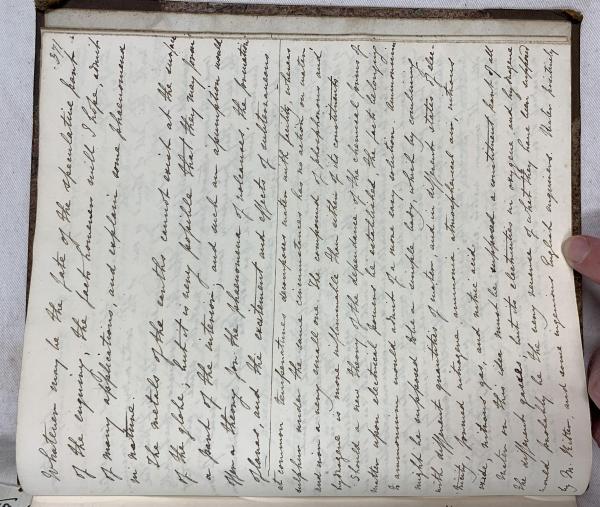 37.
Whatever may be the fate of the speculative part
of the enquiry, the facts however will I hope, admit
of many applications, and explain some phenomena
in nature.
The metals of the earths cannot exist at the surface
of the globe, but it is very possible that they may form
a part of the interior; and such an assumption would
offer a theory for the phenomena of volcanoes, the formation
of lavas, and the excitement and effects of subterraneous
at common temperatures decomposes water with facility, whereas
sulphur under the same circumstances has no action on water
and a very small one. The compound of phosphorus and
hydrogene is more inflammable than either of its constituents
Should a new theory of the dependence of the chemical forms of
matter upon electrical powers be established, the facts belonging
to ammonium would admit of a more easy solution. Ammonium
might be supposed to be a simple body, which by combining
with different quantities of water and in different states of elec-
tricity, formed nitrogene, ammonia, atmospherical air, nitrous
oxide, nitrous gas, and nitric acid.
Water on this idea must be supposed a constituent part of all
the different gases but its electricities in oxygene and hydrogene
would probably be the very reverse of what they have been supposed
by M. Ritter, and some ingenious English enquirers. Water positively